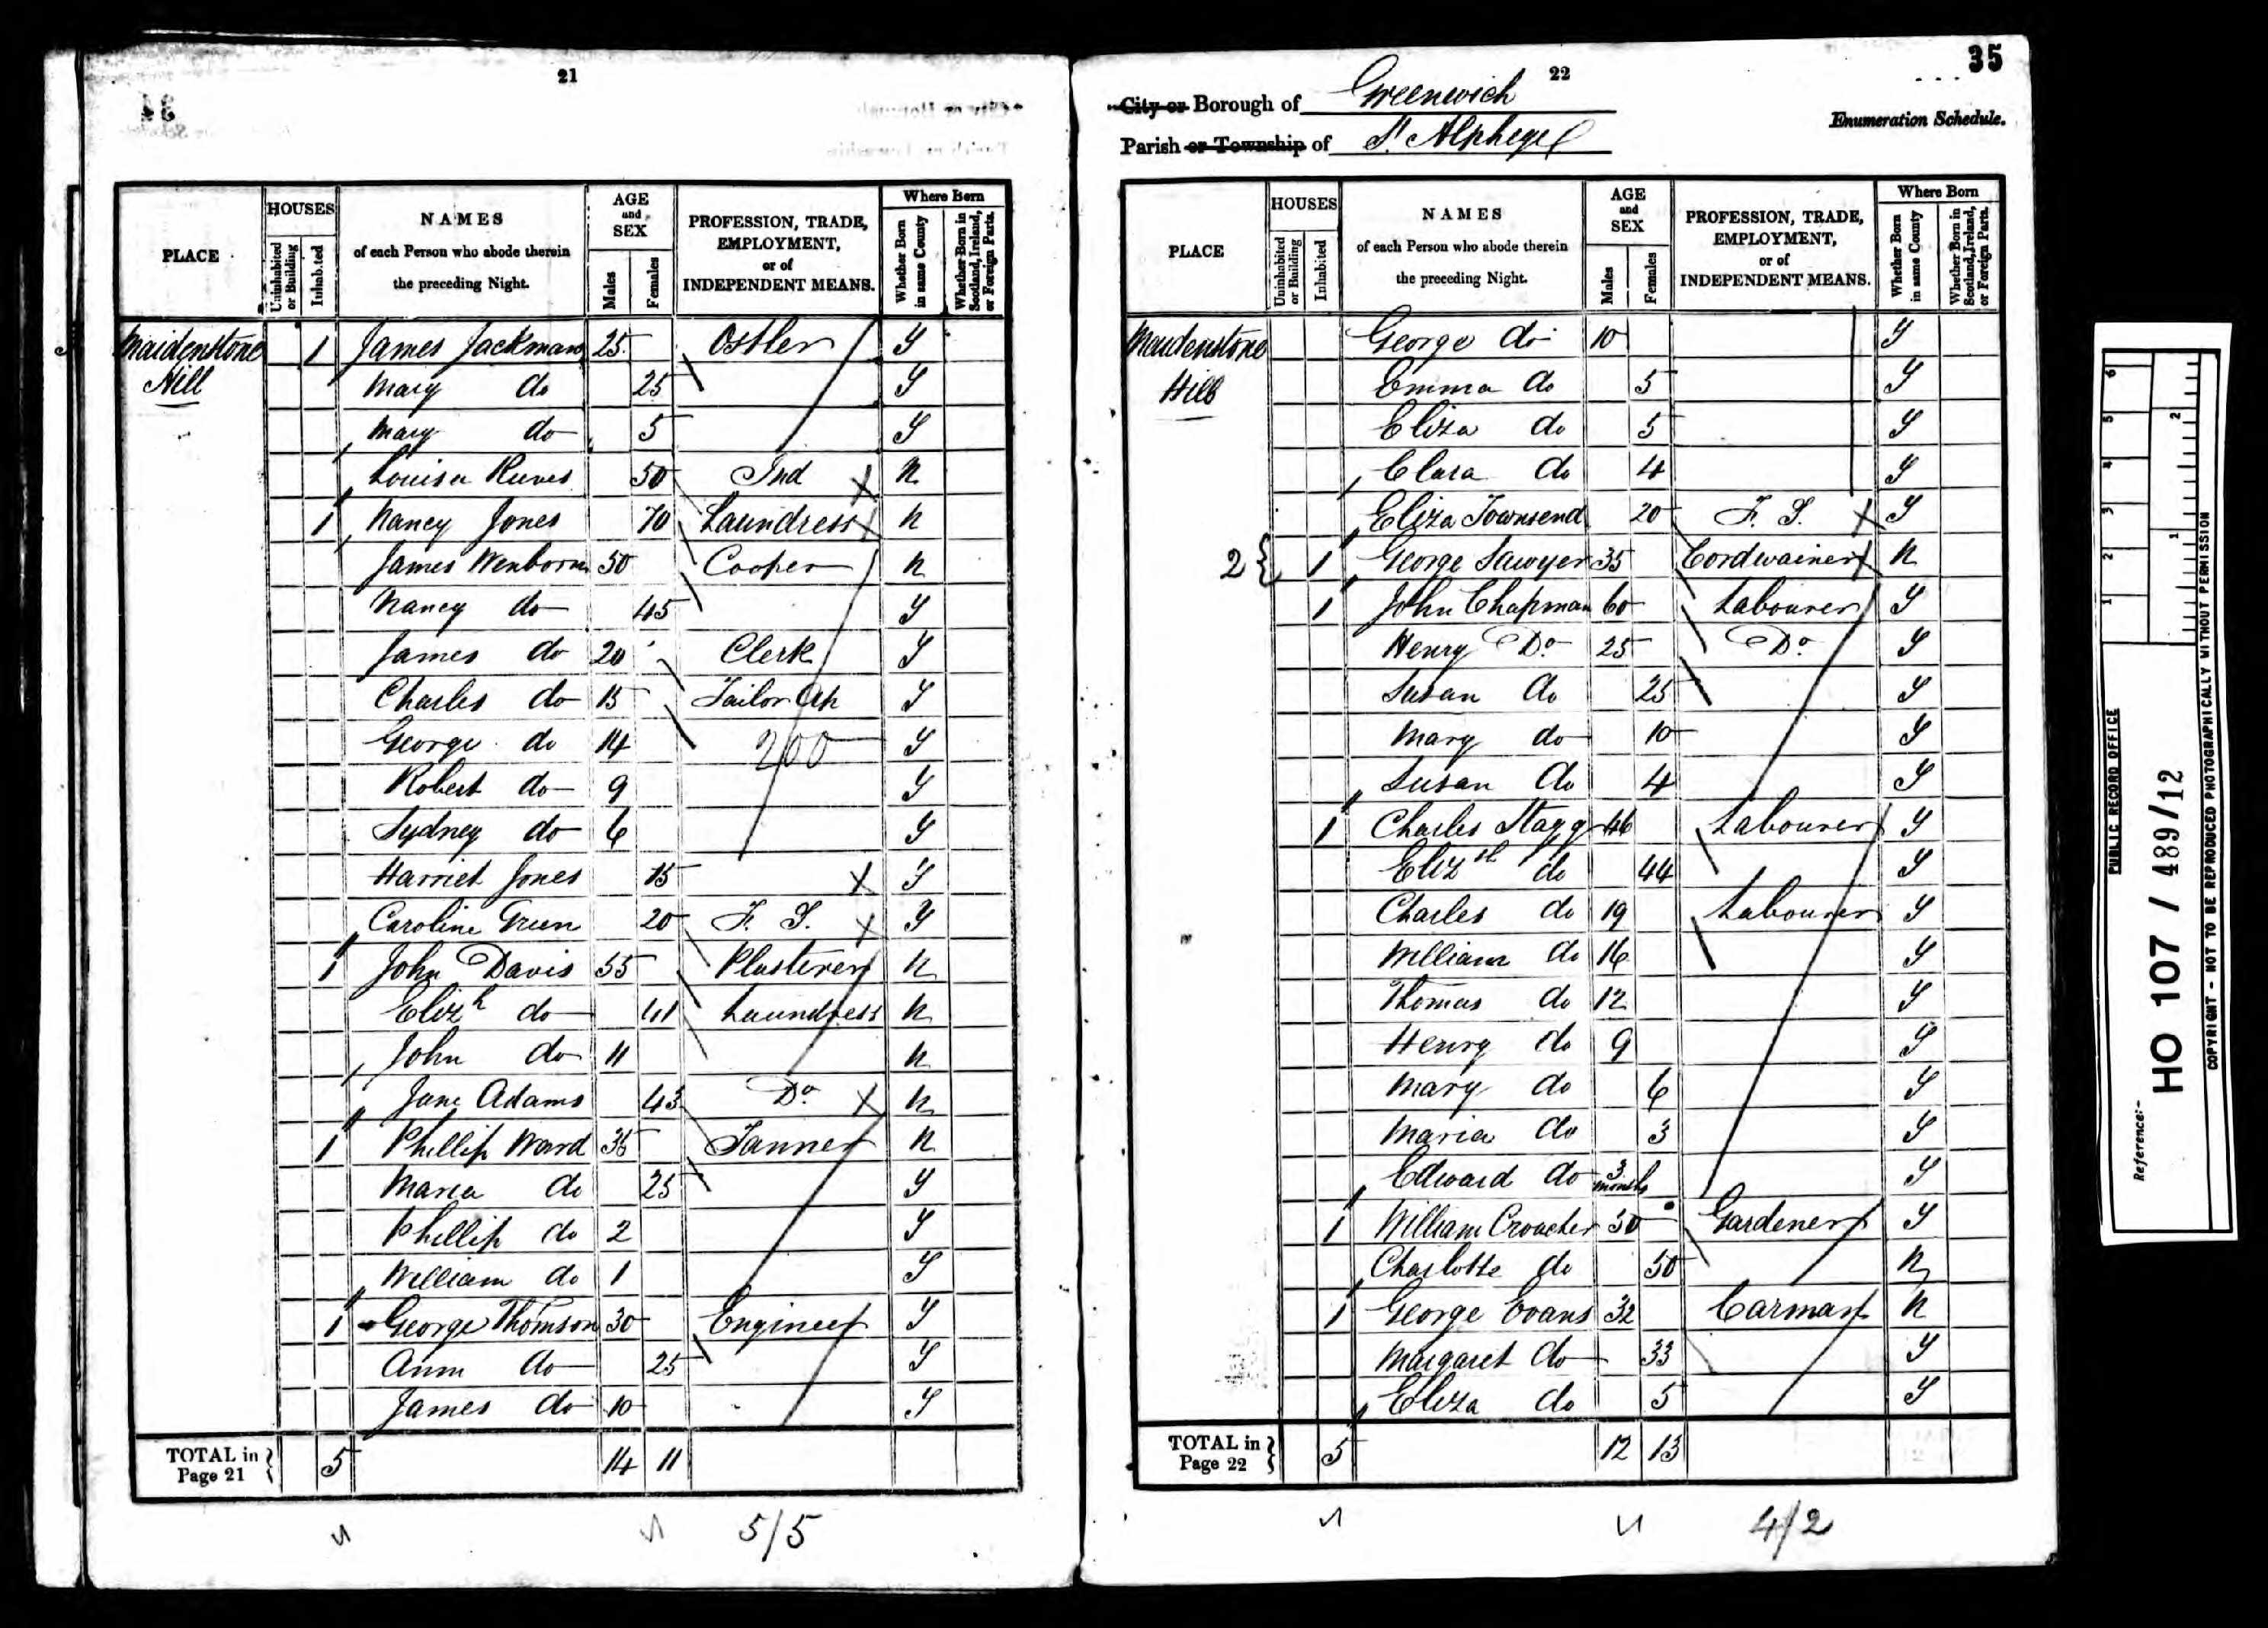 21
PLACE HOUSES Uninhabited or Building Inhabited NAMES of each Person who abode therein the preceding Night. AGE and SEX Males Females PROFESSION, TRADE, EMPLOYMENT, or of INDEPENDENT MEANS. Where Born Whether Born in same County Whether Born in Scotland, Ireland, or Foreign Parts.
Maidenstone 1 James Jackman 25 Ostler Y
Hill Mary do 25 Y
Mary do 5 Y
Louisa Reeves 50 Ind N
1 Nancy Jones 70 Laundress N
James Wenborn 50 Cooper N
Nancy do 45 Y
James do 20 Clerk Y
Charles do 15 Tailor Ap Y
George do 14 200 Y
Robert do 9 Y
Sydney do 6 Y
Harriet Jones 15 Y
Caroline Green 20 F. S. Y
1 John Davis 55 Plasterer N
Elizh do 41 Laundress N
John do 11 N
Jane Adams 43 Do N
1 Phillip Ward 35 Tanner N
Maria do 25 Y
Phillip do 2 Y
William do 1 Y
1 George Thomson 30 Engineer Y
Ann do 25 Y
James do 10 Y
TOTAL in Page 21 5 14 11
5/5
22
35
City or Borough of Greenwich
Enumeration Schedule.
Parish or Township of St Alphege
PLACE HOUSES Uninhabited or Building Inhabited NAMES of each Person who abode therein the preceding Night. AGE and SEX Males Females PROFESSION, TRADE, EMPLOYMENT, or of INDEPENDENT MEANS. Where Born Whether Born in same County Whether Born in Scotland, Ireland, or Foreign Parts.
Maidenstone George do 10 Y
Hill Emma do 5 Y
Eliza do 5 Y
Clara do 4 Y
Eliza Townsend 20 F. S. Y
2 { 1 George Sawyer 35 Cordwainer N
1 John Chapman 60 Labourer Y
Henry Do 25 Do Y
Susan do 25 Y
Mary do 10 Y
Susan do 4 Y
1 Charles Stagg 46 Labourer Y
Elizth do 44 Y
Charles do 19 Labourer Y
William do 16 Y
Thomas do 12 Y
Henry do 9 Y
Mary do 6 Y
Maria do 3 Y
Edward do 3 months Y
1 William Croucher 50 Gardener Y
Charlotte do 50 N
1 George Evans 32 Carman N
Margaret do 33 Y
Eliza do 5 Y
TOTAL in Page 22 5 12 13
4/2
1 2 3 4 5 6
1 2
PUBLIC RECORD OFFICE
Reference:-
HO 107 / 489/12
COPYRIGHT - NOT TO BE REPRODUCED PHOTOGRAPHICALLY WITHOUT PERMISSION